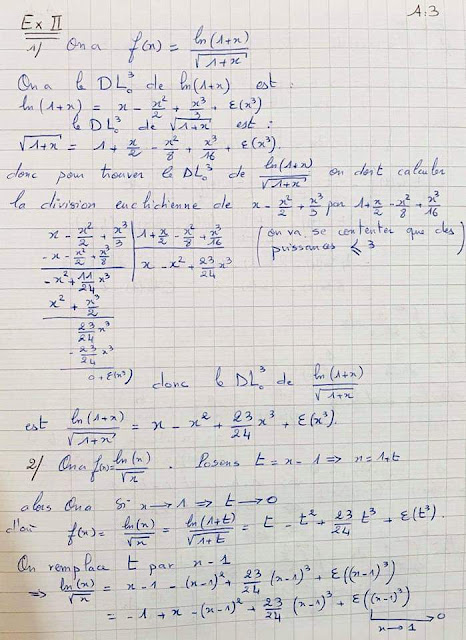 A:3
Ex II
1/ On a f(x) = ln(1+x) / √1+x
On a le DL₀³ de ln(1+x) est :
ln(1+x) = x - x²/2 + x³/3 + ε(x³)
le DL₀³ de √1+x est :
√1+x = 1 + x/2 - x²/8 + x³/16 + ε(x³).
donc pour trouver le DL₀³ de ln(1+x)/√1+x on doit calculer
la division euclidienne de x - x²/2 + x³/3 par 1 + x/2 - x²/8 + x³/16
x - x²/2 + x³/3 | 1 + x/2 - x²/8 + x³/16 (on va se contenter que des
- x - x²/2 + x³/8 | x - x² + 23/24 x³ puissances ⩽ 3)
- x² + 11/24 x³
x² + x³/2
23/24 x³
- 23/24 x³
0 + ε(x³) donc le DL₀³ de ln(1+x)/√1+x
est ln(1+x)/√1+x = x - x² + 23/24 x³ + ε(x³).
2/ On a f(x) = ln(x)/√x . Posons t = x - 1 => x = 1+t
alors On a Si x → 1 => t → 0
d'où f(x) = ln(x)/√x = ln(1+t)/√1+t = t - t² + 23/24 t³ + ε(t³).
On remplace t par x - 1
=> ln(x)/√x = x - 1 - (x-1)² + 23/24 (x-1)³ + ε((x-1)³)
= -1 + x - (x-1)² + 23/24 (x-1)³ + ε((x-1)³)
x → 1 → 0